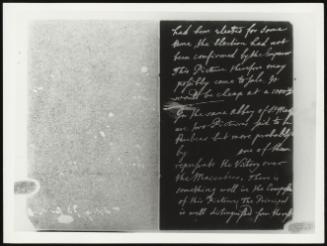 had been elected for some
time the Election had not
been confirmed by the Emperor
This Picture therefore may
possibly come to sale. It
would be cheap at a
In the same Abbey of St
are two Pictures said to be
Rubens but more probably
by one of them
represents the Victory over
the Maccabees, There is
something well in the
of this Picture, The Principal
is well distinguished from the